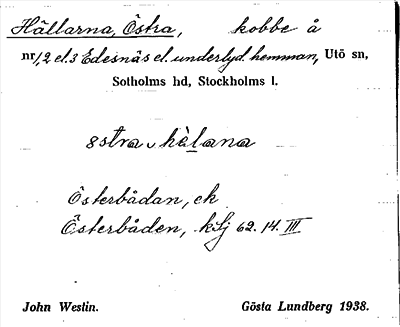 Hällarna, Östra, kobbe å
nr 1, 2 el. 3 Edesnäs el. underlyd. hemman, Utö sn,
Sotholms hd, Stockholms l.
östra hàlana
Österbådan, ek
Österbåden, kilj 62. 14. III
John Westin. Gösta Lundberg 1938.